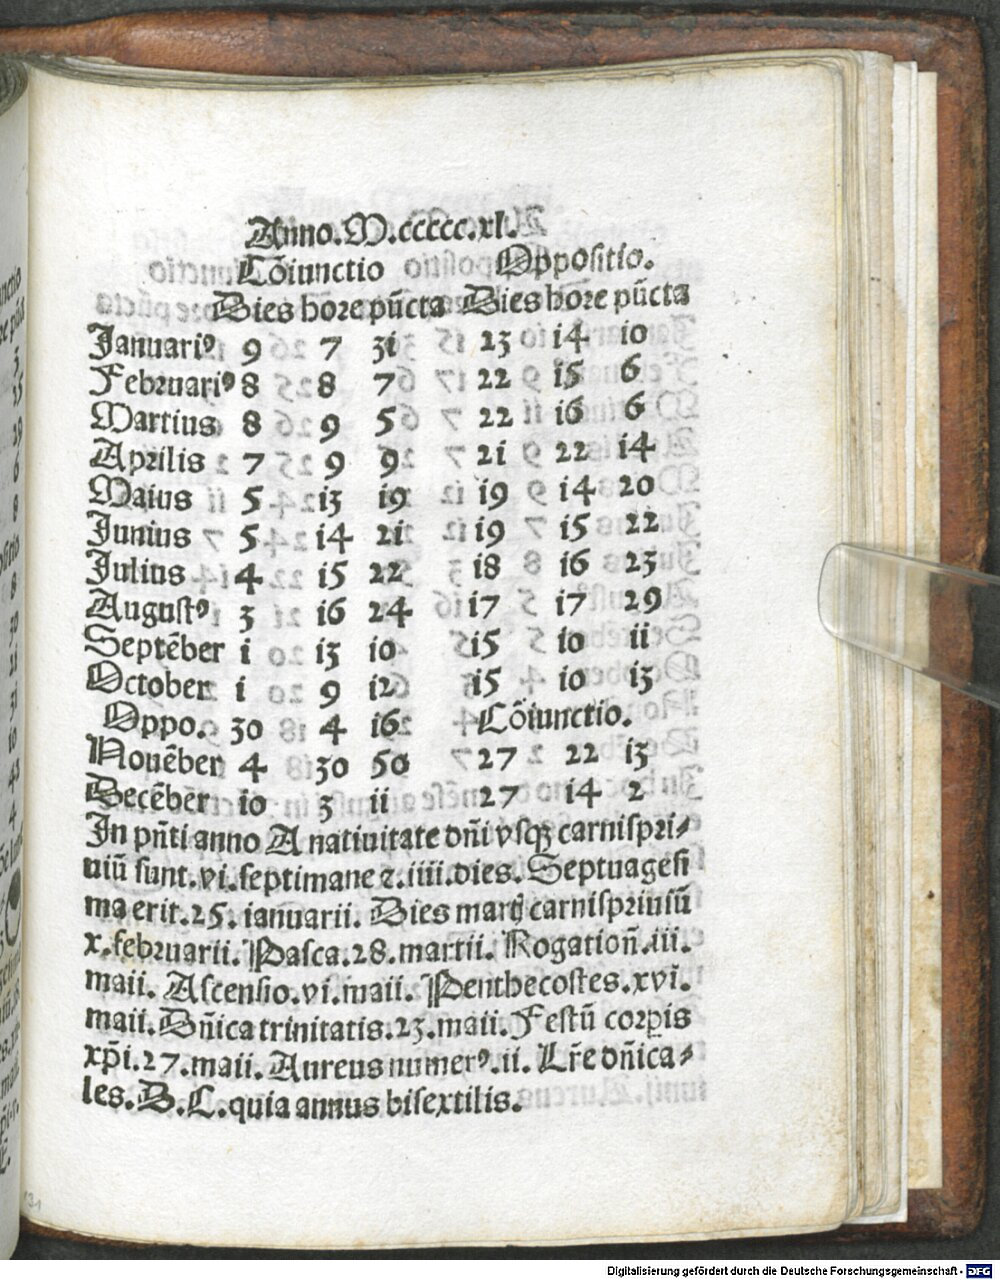 Anno.M.ccccc.xl.
Cōiunctio Oppositio.
Dies hore pūcta Dies hore pūcta
Januariꝰ 9 7 31 23 14 10
Februariꝰ 8 8 7 22 15 6
Martius 8 9 5 22 16 6
Aprilis 7 9 9 21 22 14
Maius 5 13 19 19 14 20
Junius 5 14 21 19 15 22
Julius 4 15 22 18 16 23
Augustꝰ 3 16 24 17 17 29
Septēber 1 13 10 15 10 11
October 1 9 12 15 10 13
Oppo. 30 4 16 Cōiunctio.
Nouēber 4 30 50 27 22 13
Decēber 10 3 11 27 14 2
In pñti anno A natiuitate dñi vsqꝫ carnispri⸗
uiū sunt.vi.septimane ⁊.iiii.dies. Septuagesi
ma erit.25. ianuarii. Dies martij carnispriuiū
x.februarii. Pasca.28.martii. Rogationū.iii.
maii. Ascensio.vi.maii. Penthecostes.xvi.
maii.Dñica trinitatis.23.maii. Festū corpis
xp̄i.27.maii. Aureus numerꝰ.ii. Lr̄e dñica⸗
les.D.C.quia annus bisextilis.
131
Digitalisierung gefördert durch die Deutsche Forschungsgemeinschaft - DFG